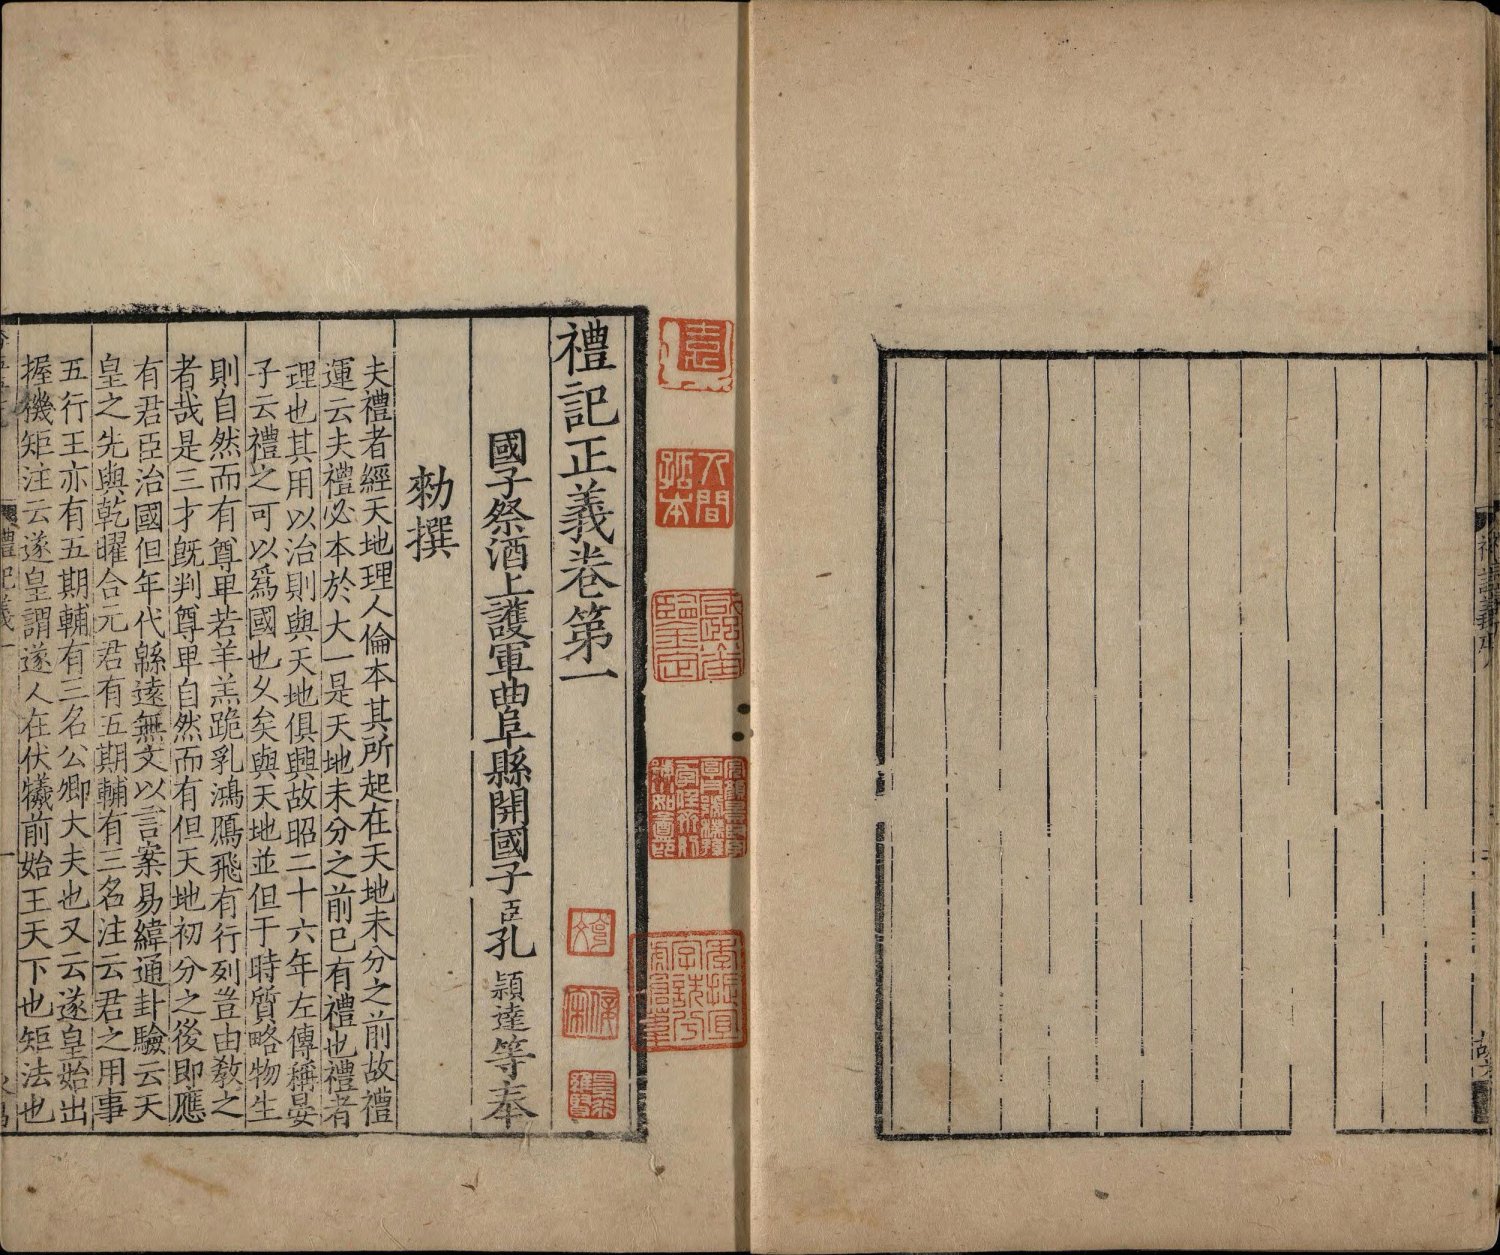 禮記義序八
禮記正義卷第一
國子祭酒上護軍曲阜縣開國子臣孔穎達等奉
勑撰
夫禮者經天地理人倫本其所起在天地未分之前故禮
運云夫禮必本於大一是天地未分之前已有禮也禮者
理也其用以治則與天地俱興故昭二十六年左傳稱晏
子云禮之可以爲國也乆矣與天地並但于時質略物生
則自然而有尊卑若羊羔跪乳鴻鴈飛有行列豈由敎之
者哉是三才旣判尊卑自然而有但天地初分之後即應
有君臣治國但年代緜遠無文以言案易緯通卦驗云天
皇之先與乾曜合元君有五期輔有三名注云君之用事
五行王亦有五期輔有三名公卿大夫也又云遂皇始出
握機矩注云遂皇謂遂人在伏犧前始王天下也矩法也
禮記義一
一
人間孤本